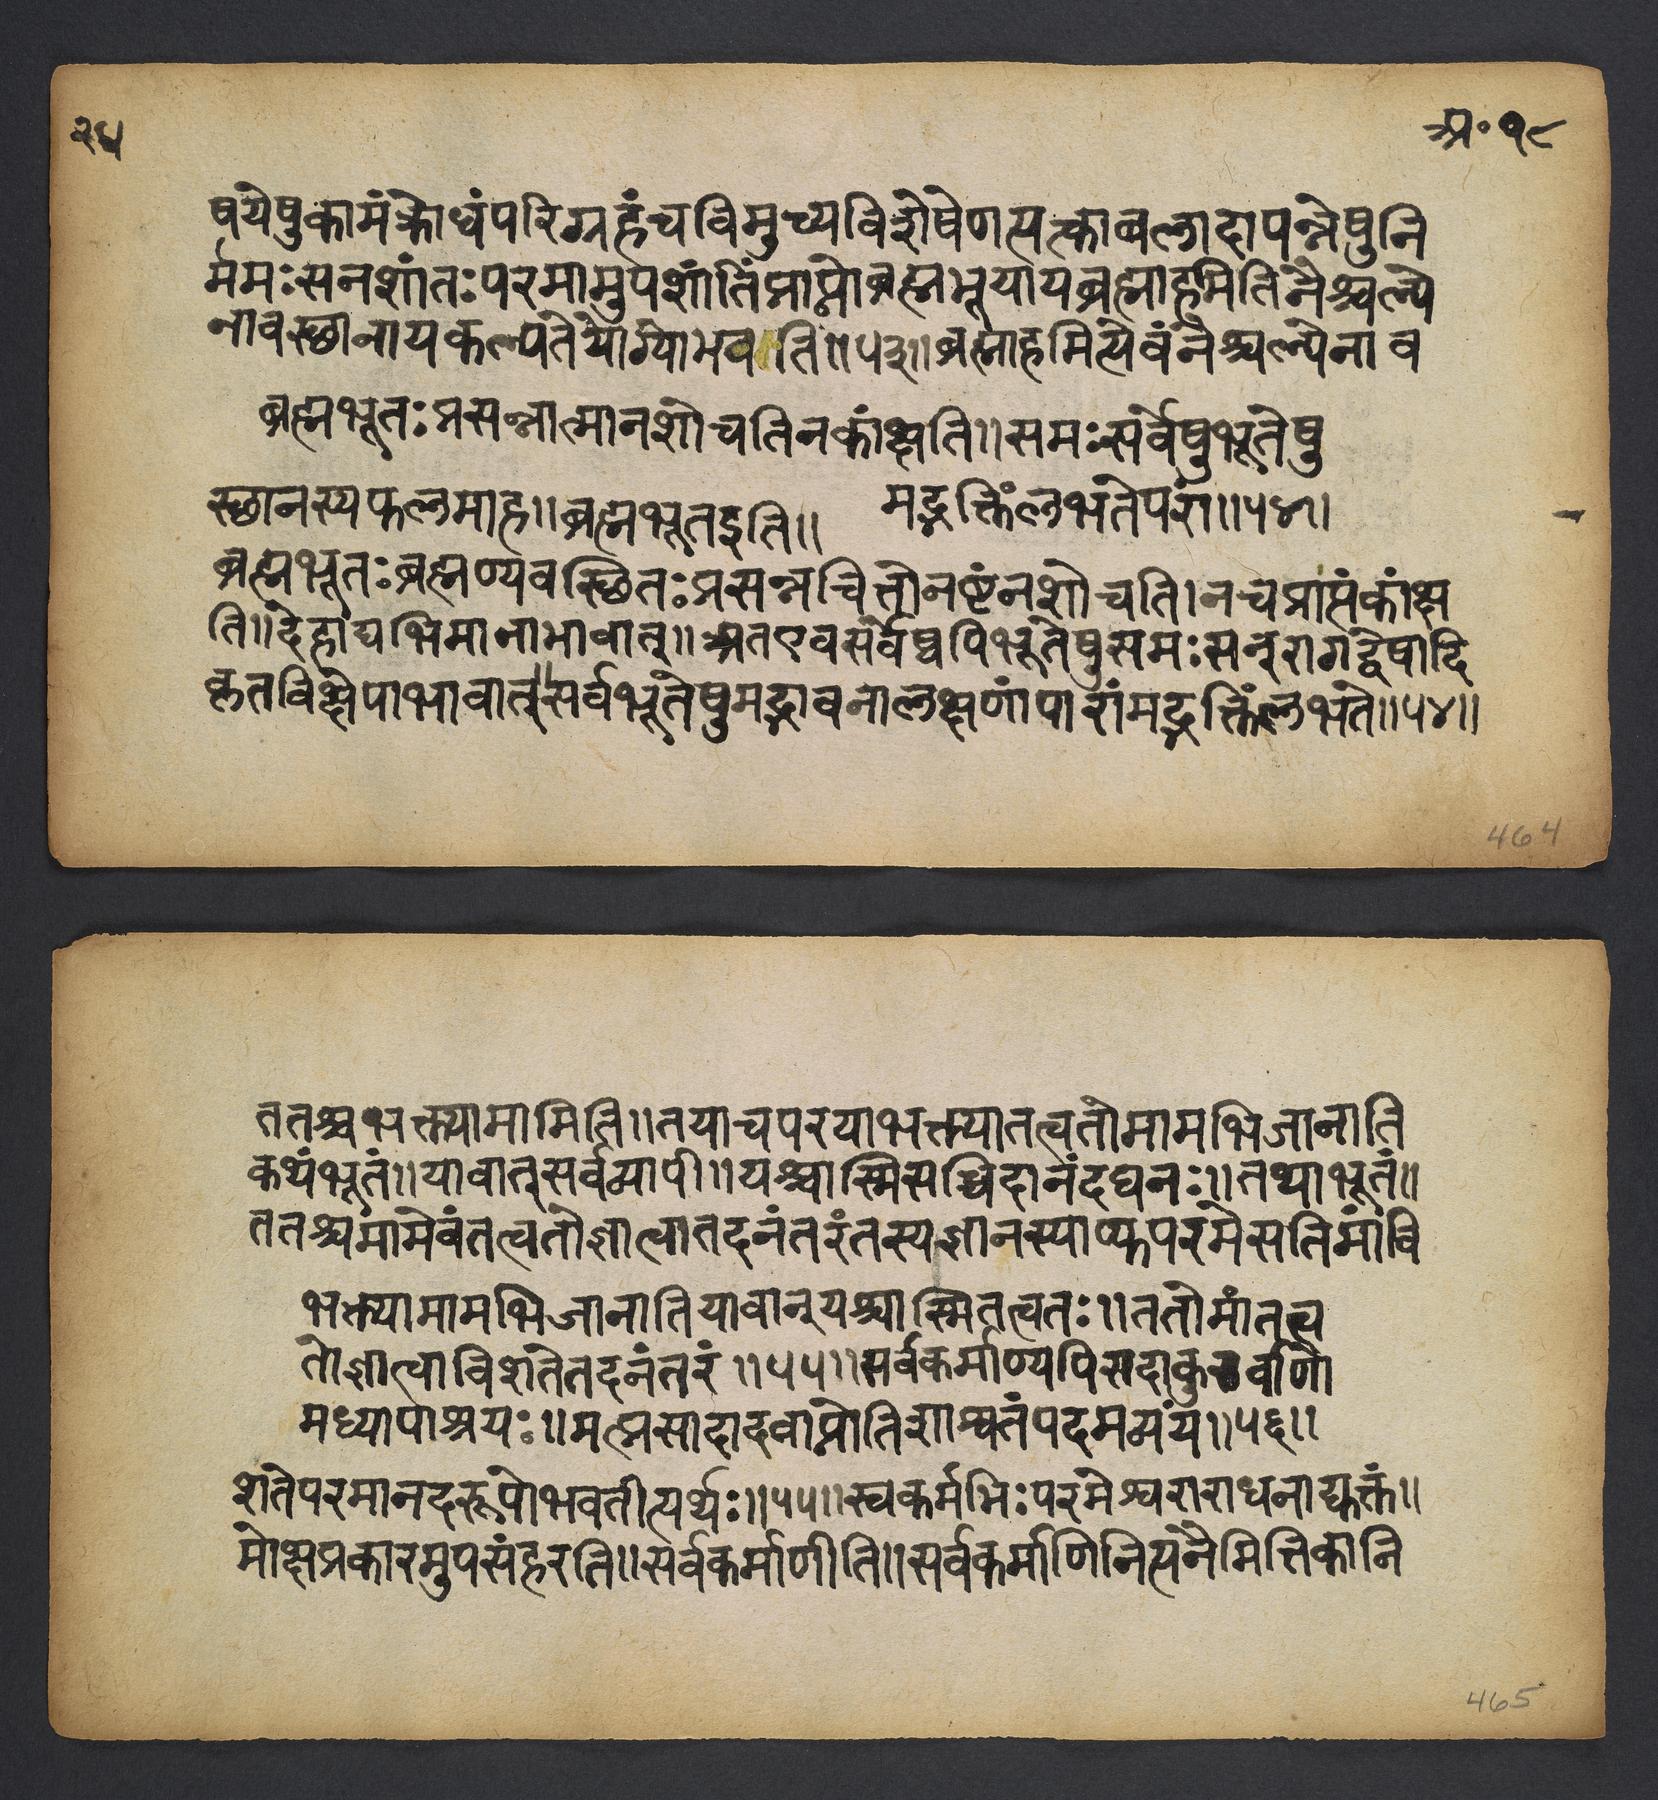 २५
अ॰१८
षयेषुकामंक्रोधंपरिग्रहंचविमुच्यविशेषेणत्यत्काबलादापन्नेषुनि
र्ममःसनशांतःपरमामुपशांतिंप्राप्तोब्रह्मभूयायब्रह्माहमितिनैश्चल्ये
नावस्छानायकल्पतेयोग्योभवति॥५३॥ब्रह्माहमित्येवंनैश्चल्येनाव
ब्रह्मभूतःप्रसन्नात्मानशोचतिनकांक्षति॥समःसर्वेषुभूतेषु
स्छानस्यफलमाह॥ब्रह्मभूतइति॥
मद्भक्तिंलभतेपरां॥५४॥
ब्रह्मभूतःब्रह्मण्यवस्छितःप्रसन्नचित्तोनष्टंनशोचति।नचप्राप्तंकांक्ष
ति॥देहाद्यभिमानाभावात्॥अतएवसर्वेष्वपिभूतेषुसमःसन्रागद्वेषादि
कृतविक्षेपाभावात्॥सर्वभूतेषुमद्भावनालक्षणांपारांमद्भक्तिंलभते॥५४॥
464
ततश्चभक्त्यामामिति॥तयाचपरयाभक्त्यातत्वतोमामभिजानाति
कथंभूतं॥यावात्सर्वव्यापी॥यश्चास्मिसच्चिदानंदघनः॥तथाभूतं॥
ततश्चमामेवंतत्वतोज्ञात्वातदनंतरंतस्यज्ञानस्याप्यपरमेसतिमांवि
भक्त्यामामभिजानातियावान्यश्चास्मितत्वतः॥ततोमांतत्त्व
तोज्ञात्वाविशतेतदनंतरं॥५५॥सर्वकर्माण्यपिसदाकुर्वाणो
मध्यापाश्रयः॥मत्प्रसादादवाप्नोतिशाश्वतंपदमव्यंय॥५६॥
शतेपरमानदरूपोभवतीत्यर्थः॥५५॥स्वकर्मभिःपरमेश्वराराधनाद्युक्तं॥
मोक्षप्रकारमुपसंहरति॥सर्वकर्माणीति॥सर्वकर्माणिनित्यनैमित्तिकानि
465